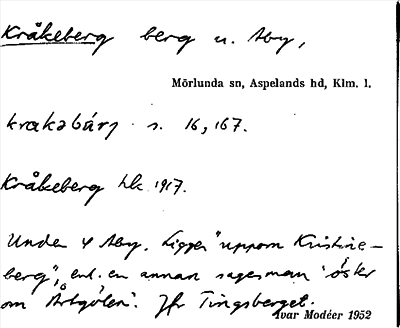 Kråkeberg berg u. Åby,
Mörlunda sn, Aspelands hd, Klm. l.
krakabärj. s. 16, 167.
Kråkeberg hlk 1917.
Under 4 Åby. Ligger "uppom Kristine-
berg", enl. en annan sagesman "öster
om Årtgölen". Jfr Tingsberget.
Ivar Modéer 1952